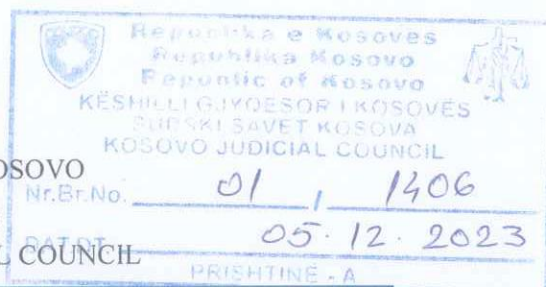 Republika e Kosovës
Republika Kosovo
Republic of Kosovo
KËSHILLI GJYQËSOR I KOSOVËS
SUDSKI SAVET KOSOVA
KOSOVO JUDICIAL COUNCIL
OSOVO
Nr.Br.No. 01 / 1406
05.12.2023
L COUNCIL
PRISHTINË - A